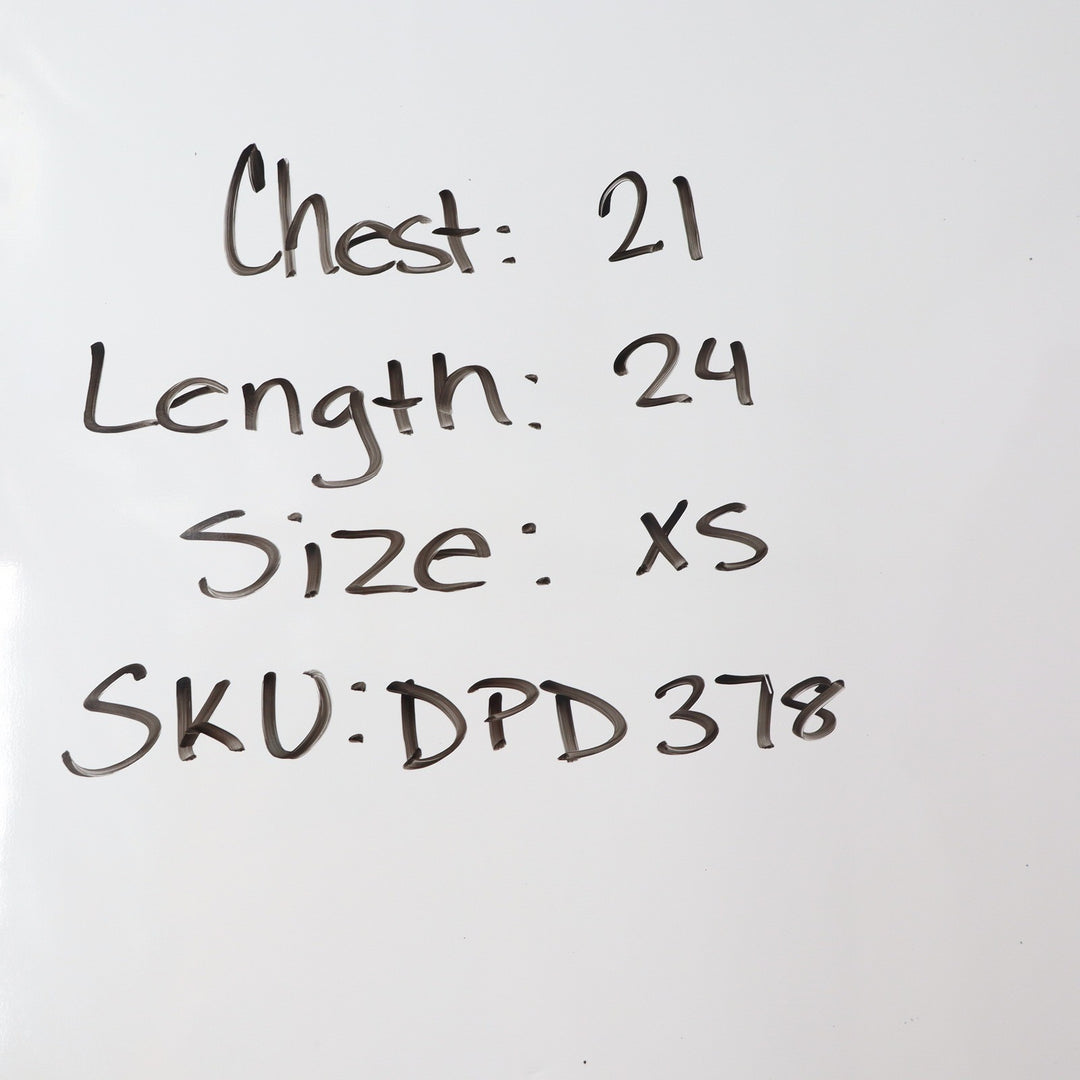 Chest: 21
Length: 24
Size: XS
SKU: DPD378